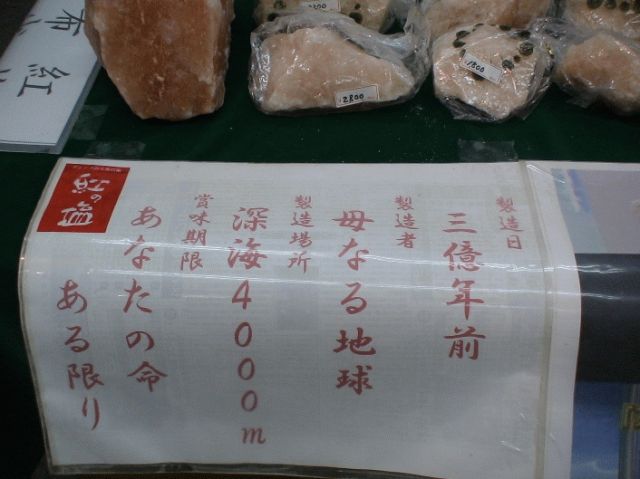 製造日
三億年前
製造者
母なる地球
製造場所
深海4000m
賞味期限
あなたの命
ある限り
2800
1800
布
紅